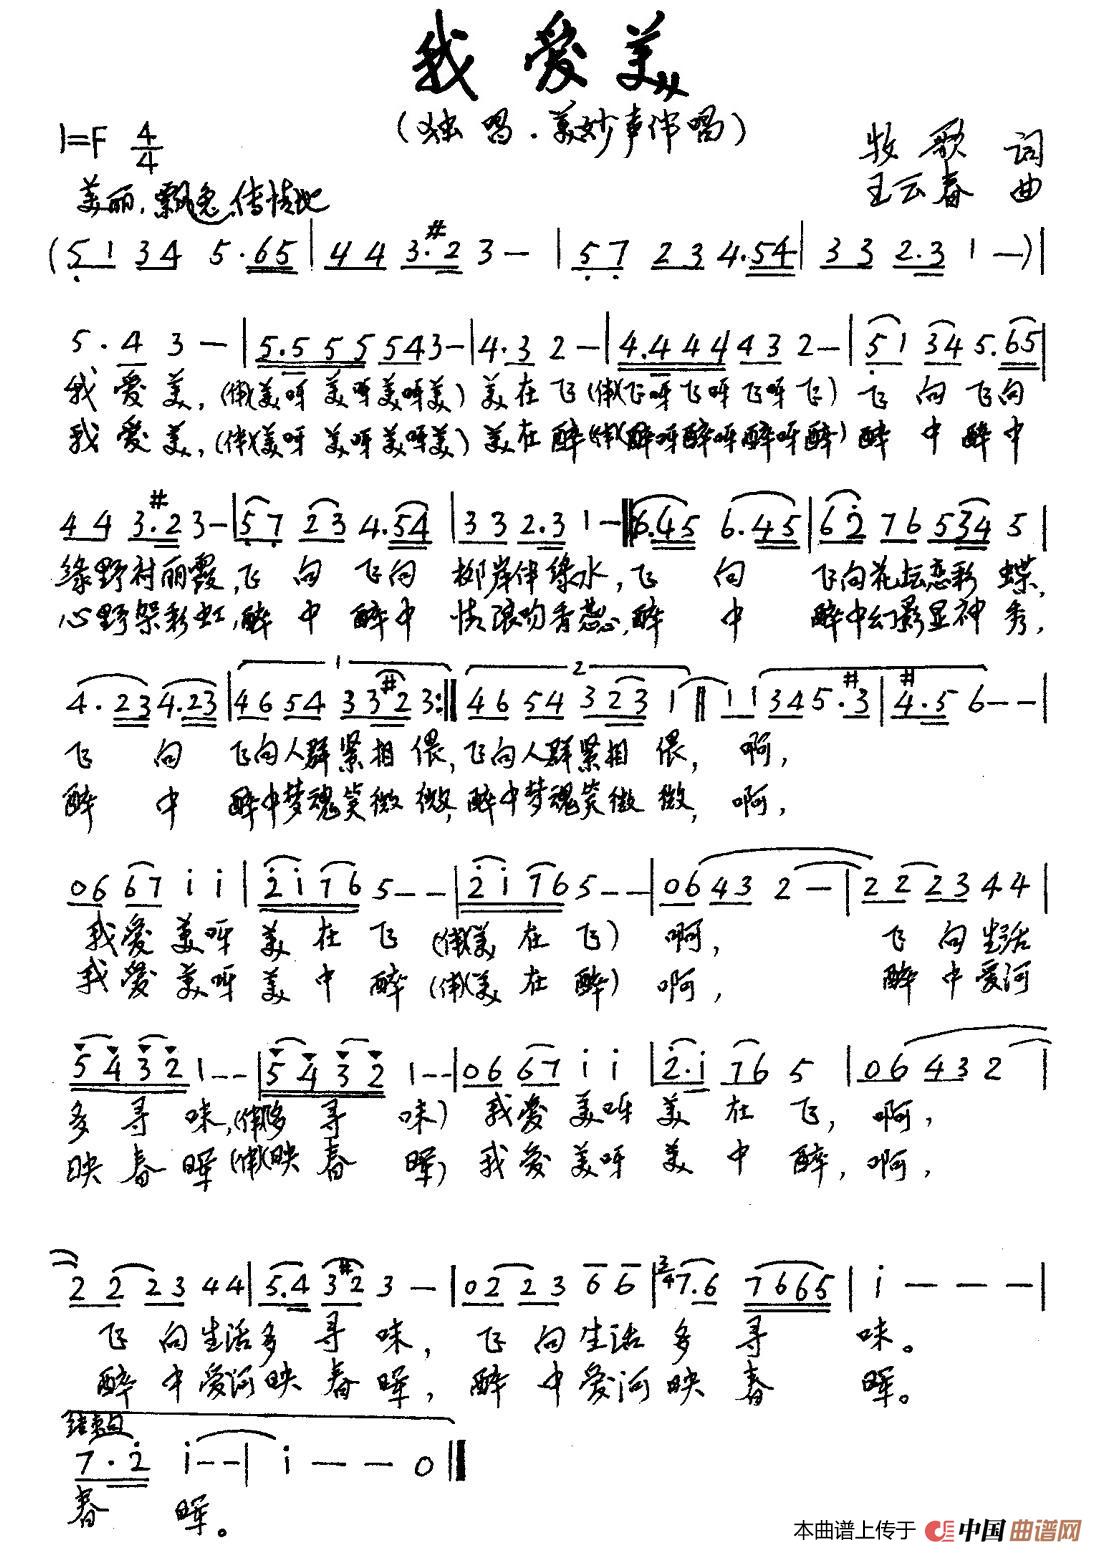 我爱美
(独唱.美妙声伴唱)
1=F 4/4
牧歌 词
王云春 曲
美丽、飘逸、传情地
(5 1 3 4 5·65|4 4 3·#2 3 —|5 7 2 3 4·54|3 3 2·3 1 —)|
5·4 3 —|5·5 5 5 5 4 3 —|4·3 2 —|4·4 4 4 4 3 2 —|5 1 3 4 5·65|
我爱美,(伴)(美呀美呀美呀美)美在飞(伴)(飞呀飞呀飞呀飞)飞向飞向
我爱美,(伴)(美呀美呀美呀美)美在醉(伴)(醉呀醉呀醉呀醉)醉中醉中
4 4 3·#2 3 —|5 7 2 3 4·54|3 3 2·3 1 —‖6·45 6·45|6 2 7 6 5 3 4 5|
绿野衬丽霞,飞向飞向柳岸伴绿水,飞向飞向花坛恋彩蝶,
心野架彩虹,醉中醉中情浪吻香蕊,醉中醉中幻影显神秀,
4·23 4·23|4 6 5 4 3 3 #2 3:‖4 6 5 4 3 2 3 1‖1 1 3 4 5·#3|#4·5 6 — —|
飞向飞向人群紧相偎,飞向人群紧相偎,啊,
醉中醉中梦魂笑微微,醉中梦魂笑微微,啊,
0 6 6 7 i i|2 i 7 6 5 — —|2 i 7 6 5 — —|0 6 4 3 2 —|2 2 2 3 4 4|
我爱美呀美在飞(伴)(美在飞)啊,飞向生活
我爱美呀美中醉(伴)(美在醉)啊,醉中爱河
5 4 3 2 1 — —|5 4 3 2 1 — —|0 6 6 7 i i|2·i 7 6 5|0 6 4 3 2|
多寻味,(伴)(多寻味)我爱美呀美在飞,啊,
映春晖(伴)(映春晖)我爱美呀美中醉,啊,
2 2 2 3 4 4|5·4 3 #2 3 —|0 2 2 3 6 6|3/4 7·6 7 6 6 5|i — — —|
飞向生活多寻味,飞向生活多寻味。
醉中爱河映春晖,醉中爱河映春晖。
结束句
7·2 i — —|i — — 0‖
春晖。
本曲谱上传于 中国曲谱网